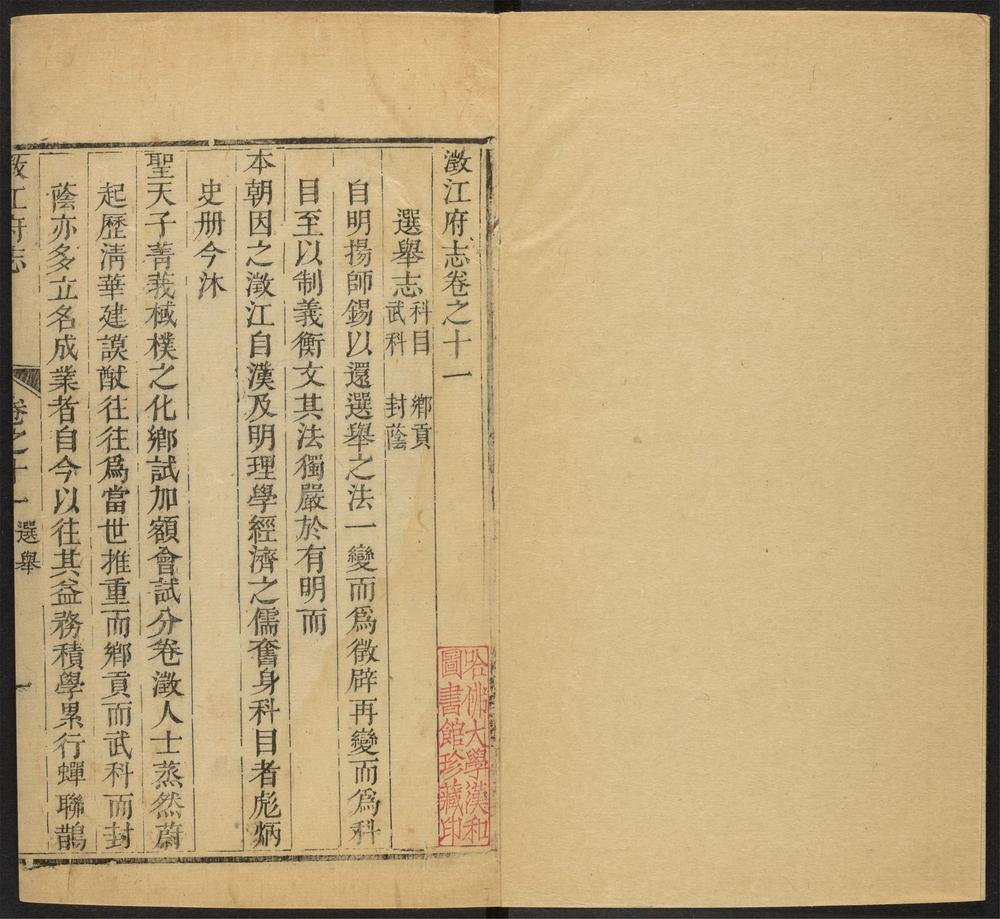 澂江府志卷之十一
選舉志 科目 鄉貢
武科 封蔭
自明揚師錫以還選舉之法一變而爲徵辟再變而爲科
目至以制義衡文其法獨嚴於有明而
本朝因之澂江自漢及明理學經濟之儒奮身科目者彪炳
史册今沐
聖天子菁莪棫樸之化鄉試加額會試分卷澂人士蒸然蔚
起歷淸華建謨猷往往爲當世推重而鄉貢而武科而封
蔭亦多立名成業者自今以往其益務積學累行蟬聯鵲
澂江府志 卷之十一 選舉 一
哈佛大學漢和
圖書館珍藏印